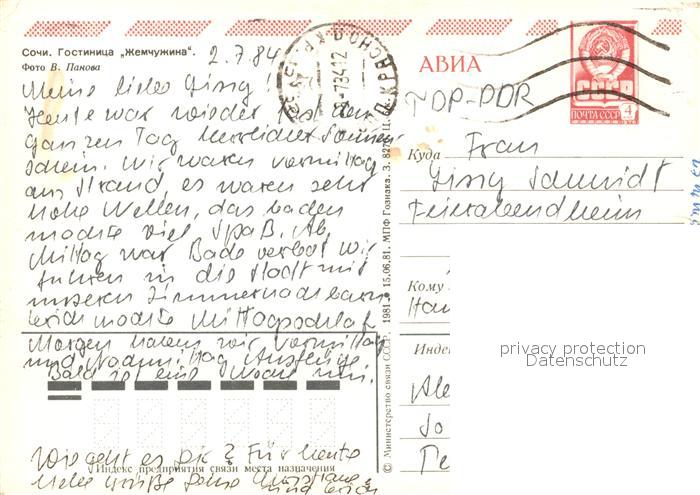 Сочи. Гостиница „Жемчужина".
Фото В. Панова
2.7.84
Meine liebe Gissy!
Heute war wieder den
ganzen Tag herrlicher Sonnen-
schein. Wir waren vormittag
am Strand, es waren sehr
hohe Wellen, das baden
machte viel Spaß. Ab
Mittag war Bade verbot wir
fuhren in die Stadt mit
unseren Zimmernachbarn
Erich machte Mittagsschlaf
Morgen haben wir vormittag
und Nachmittag Ausflüge.
Bald ist eine Woche rum.
Wie geht es Dir? Für heute
liebe Grüße Deine
und Erich
Индекс предприятия связи места назначения
© Министерство связи СССР. 1981. 15.06.81. МПФ Гознака. З.
АВИА
СССР
ПОЧТА СССР
4
ГДР-DDR
Куда
Frau
Gissy Schmidt
Feierabendheim
Кому
Индек
privacy protection
Datenschutz